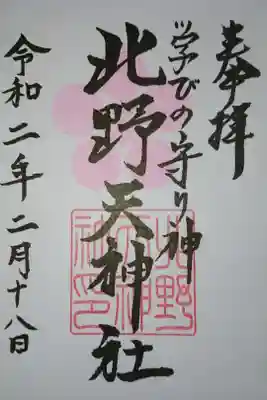 奉拝
学びの守り神
北野天神社
北野天神社印
令和二年二月十八日